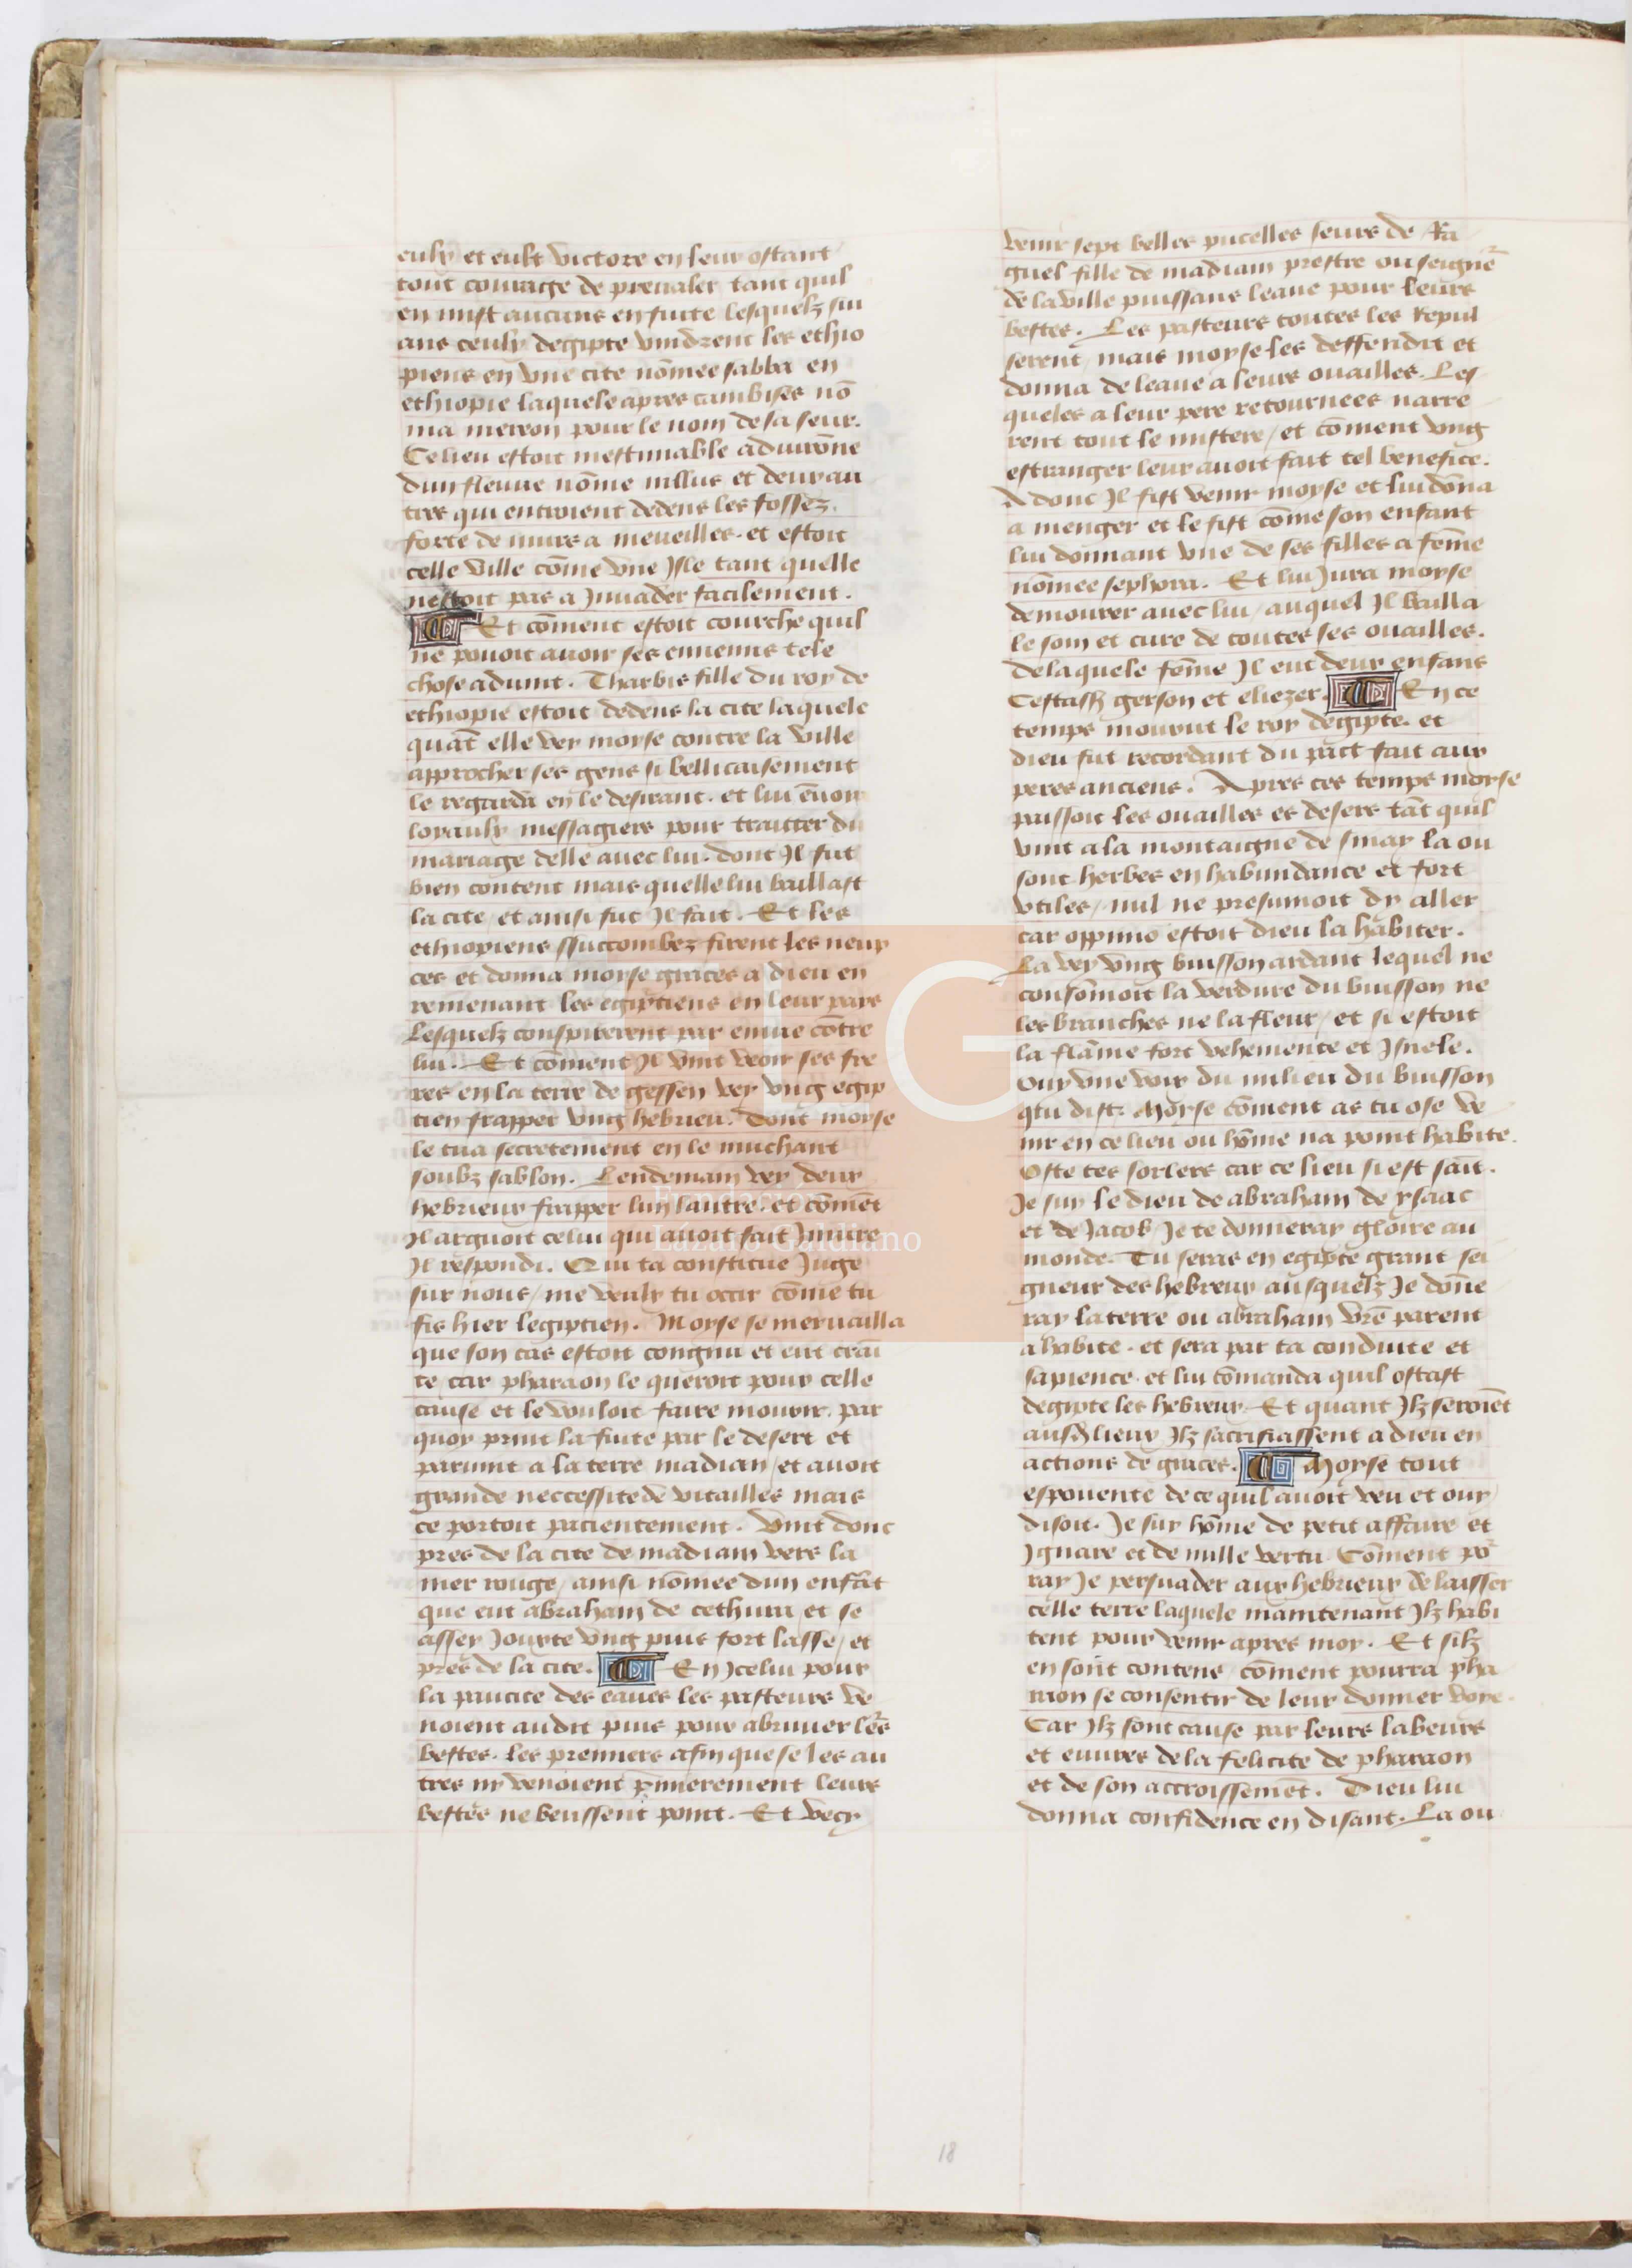 eulx et eult victore en leur ostant
tout courage de prevaler tant quil
en mist aucuns en fuite lesquelz sui
ans ceulx degipte vindrent les ethio
piens en vne cite nōmee sabba en
ethiopie laquele apres cambises nō
ma meroy pour le nom de sa seur.
Ce lieu estoit inestimable aduirōne
dun fleuue nōme nillus et deux au
tres qui entroient dedens les fossez
forte de murs a merueilles. et estoit
celle ville cōme vne Isle tant quelle
nestoit pas a Inuader facilement.
Et cōment estoit courche quil
ne pouoit auoir ses ennemis tele
chose aduint. Tharbis fille du roy de
ethiopie estoit dedens la cite laquele
quāt elle vey moyse contre la ville
approcher ses gens si bellicaisement
le regarda en le desirant. et lui ēuoy
loyaulx messagiers pour traitter du
mariage delle auec lui. dont Il fut
bien content mais quelle lui baillast
la cite / et ainsi fut Il fait. Et les
ethiopiens ssuccombez firent les neup
ces et donna moyse graces a dieu en
remenant les egiptiens en leur pays
Lesquelz conspirerent par enuie cōtre
lui. Et cōment Il vint veoir ses fre
res en la terre de gessen vey vng egip
tien frapper vng hebrieu. Dont moyse
le tua secretement en le muchant
soubz sablon. Lendemain vey deux
hebrieux frapper lun lautre. et cōmēt
Il arguoit celui qui auoit fait Iniure
Il respondi. Qui ta constitue Juge
sur nous / me veulx tu occir cōme tu
fis hier legiptien. Moyse se meruailla
que son cas estoit congnu et eut crai
te car pharaon le queroit pour celle
cause et le vouloit faire mourir. par
quoy print la fuite par le desert et
paruint a la terre madian / et auoit
grande neccessite de vitailles mais
ce portoit pacientement. Vint donc
pres de la cite de madiam vers la
mer rouge / ainsi nōmee dun enfāt
que eut abraham de cethura et se
assey Jouxte vng puis fort lasse / et
pres de la cite. En Icelui pour
la paucite des eaues les pasteurs ve
noient audit puis pour abruuer leˢ
bestes. les premiers afin que se les au
tres ny venoient p̄mierement leurs
bestes ne beussent point. Et vecy
venir sept belles pucelles seurs de Ra
guel fille de madiam prestre ou seignē
de la ville puissans leaue pour leurs
bestes. Les pasteurs toutes les Repul
serent / mais moyse les deffendit et
donna de leaue a leurs ouailles. Les
queles a leur pere retournees narre
rent tout le mistere / et cōment vng
estranger leur auoit fait tel benefice.
A donc Il fist venir moyse et lui dōna
a menger et le fist cōme son enfant
lui donnant vne de ses filles a fēme
nōmee sephora. Et lui Jura moyse
demourer auec lui / auquel Il bailla
le soin et cure de toutes ses ouailles.
de laquele fēme Il eut deux enfans
Cestassz gerson et eliezer. En ce
temps mourut le roy degipte. et
dieu fut recordant du pact fait aux
peres anciens. Apres ces temps moyse
paissoit les ouailles es desers tāt quil
vint a la montaigne de sinay la ou
sont herbes en habundance et fort
vtiles / nul ne presumoit dy aller
car oppinio estoit dieu la habiter.
La vey vng buisson ardant lequel ne
consōmoit la verdure du buisson ne
les branches ne la fleur / et si estoit
la flāme fort vehemente et Isnele.
Ouy vne voix du milieu du buisson
qui dist. Moyse cōment as tu ose ve
nir en ce lieu ou hōme na point habite.
Oste tes sorlers car ce lieu si est saīt.
Je suy le dieu de abraham de ysaac
et de Jacob / Je te donneray gloire au
monde. Tu seras en egipte grant sei
gneur des hebreux ausquelz Je dōne
ray la terre ou abraham vrē parent
a habite. et sera par ta conduite et
sapience. et lui cōmanda quil ostast
degipte les hebreux. Et quant Ilz seroiēt
ausd̄ lieux Ilz sacrifiassent a dieu en
actions de graces. Moyse tout
espouente de ce quil auoit veu et ouy
disoit. Je suy hōme de petit affaire et
Ignare et de nulle vertu. Cōment po
ray Je persuader aux hebrieux de laisser
celle terre laquele maintenant Ilz habi
tent pour venir apres moy. Et silz
en sont contens / cōment pourra pha
raon se consentir de leur donner voye.
Car Ilz sont cause par leurs labeurs
et euures de la felicite de pharaon
et de son accroissemēt. Dieu lui
donna confidence en disant. La ou
18
FLG
Fundación
Lázaro Galdiano